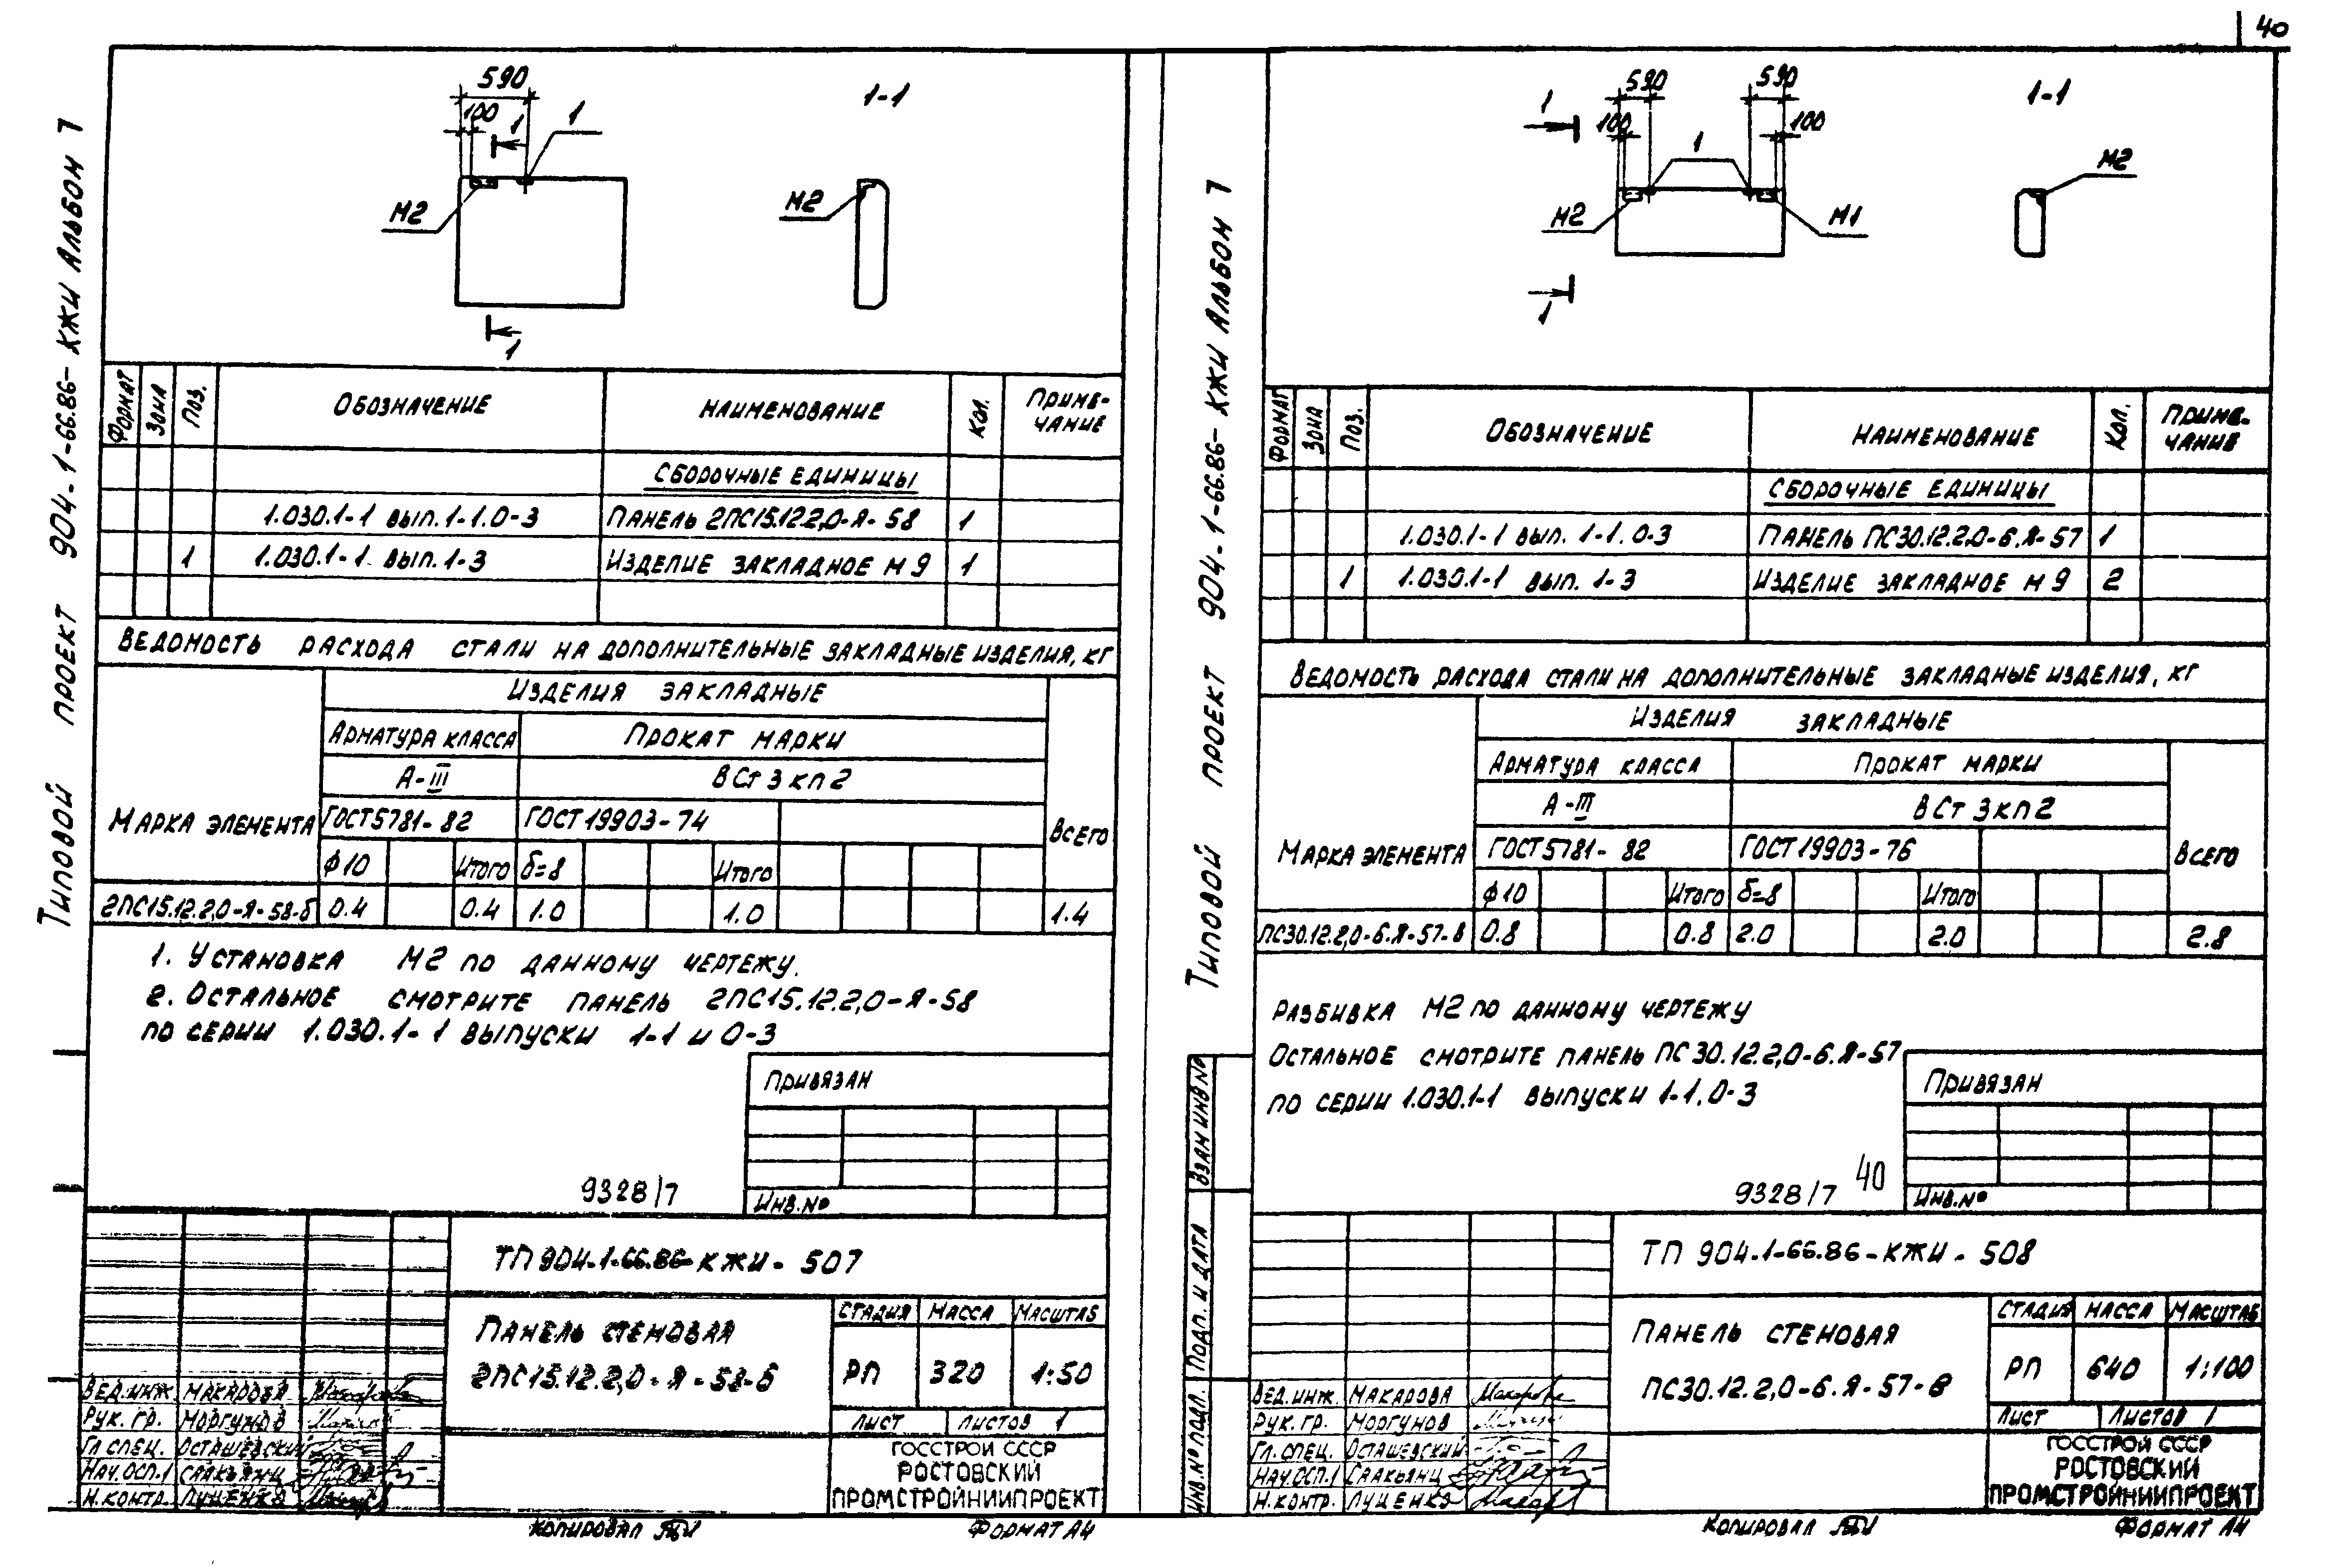 40
Типовой проект 904-1-66.86-КЖИ Альбом 7
590
100
1
1
1-1
М2
М2
1
Формат
Зона
Поз.
Обозначение
Наименование
Кол.
Приме-
чание
Сборочные единицы
1.030.1-1 вып. 1-1.0-3 Панель 2ПС15.12.2,0-Я-58 1
1 1.030.1-1 вып. 1-3 Изделие закладное М9 1
Ведомость расхода стали на дополнительные закладные изделия, кг
Марка элемента
Изделия закладные
Арматура класса Прокат марки
А-III ВСт3кп2
ГОСТ5781-82 ГОСТ19903-74
Всего
ф10 Итого δ=8 Итого
2ПС15.12.2,0-Я-58-б 0.4 0.4 1.0 1.0 1.4
1. Установка М2 по данному чертежу.
2. Остальное смотрите панель 2ПС15.12.2,0-Я-58
по серии 1.030.1-1 выпуски 1-1 и 0-3
Привязан
Инв.№
9328/7
ТП 904-1-66.86-КЖИ-507
Панель стеновая
2ПС15.12.2,0-Я-58-б
Стадия Масса Масштаб
РП 320 1:50
Лист Листов 1
Госстрой СССР
Ростовский
Промстройниипроект
Вед.инж. Макарова
Рук. гр. Моргунов
Гл спец. Осташевский
Нач.осп.1 Саакьянц
Н.контр. Луценко
Копировал
Формат А4
Типовой проект 904-1-66.86-КЖИ Альбом 7
590
590
100
100
1
1
1-1
М2
М1
М2
1
Формат
Зона
Поз.
Обозначение
Наименование
Кол.
Приме-
чание
Сборочные единицы
1.030.1-1 вып. 1-1.0-3 Панель ПС30.12.2,0-6.Я-57 1
1 1.030.1-1 вып. 1-3 Изделие закладное М9 2
Ведомость расхода стали на дополнительные закладные изделия, кг
Марка элемента
Изделия закладные
Арматура класса Прокат марки
А-III ВСт3кп2
ГОСТ5781-82 ГОСТ19903-76
Всего
ф10 Итого δ=8 Итого
ПС30.12.2,0-6.Я-57-в 0.8 0.8 2.0 2.0 2.8
Разбивка М2 по данному чертежу
Остальное смотрите панель ПС30.12.2,0-6.Я-57
по серии 1.030.1-1 выпуски 1-1, 0-3
Привязан
Инв.№
9328/7 40
Взам инв №
Подп. и дата
Инв.№ подл.
ТП 904.1-66.86-КЖИ-508
Панель стеновая
ПС30.12.2,0-6.Я-57-в
Стадия Масса Масштаб
РП 640 1:100
Лист Листов 1
Госстрой СССР
Ростовский
Промстройниипроект
Вед.инж. Макарова
Рук. гр. Моргунов
Гл. спец. Осташевский
Нач.осп.1 Саакьянц
Н.контр. Луценко
Копировал
Формат А4